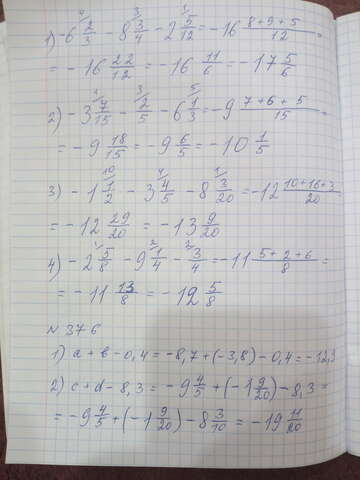 1) -6 2/3 - 8 3/4 - 2 5/12 = -16 (8+9+5)/12 =
= -16 22/12 = -16 11/6 = -17 5/6
2) -3 7/15 - 2/5 - 6 1/3 = -9 (7+6+5)/15 =
= -9 18/15 = -9 6/5 = -10 1/5
3) -1 1/2 - 3 4/5 - 8 3/20 = -12 (10+16+3)/20
= -12 29/20 = -13 9/20
4) -2 5/8 - 9 1/4 - 3/4 = -11 (5+2+6)/8 =
= -11 13/8 = -12 5/8
№ 376
1) a + b - 0,4 = -8,7 + (-3,8) - 0,4 = -12,9
2) c + d - 8,3 = -9 4/5 + (-1 9/20) - 8,3 =
= -9 4/5 + (-1 9/20) - 8 3/10 = -19 11/20